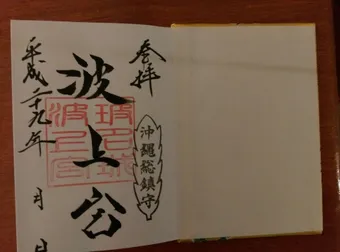 参拝
沖繩総鎮守
波上宮
平成二十九年 月 日